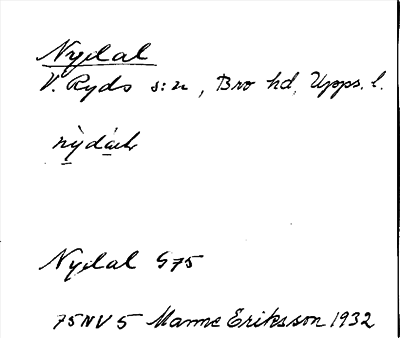 Nydal
V. Ryds s:n, Bro hd, Upps. l.
Nydal G75
75NV5 Manne Eriksson 1932